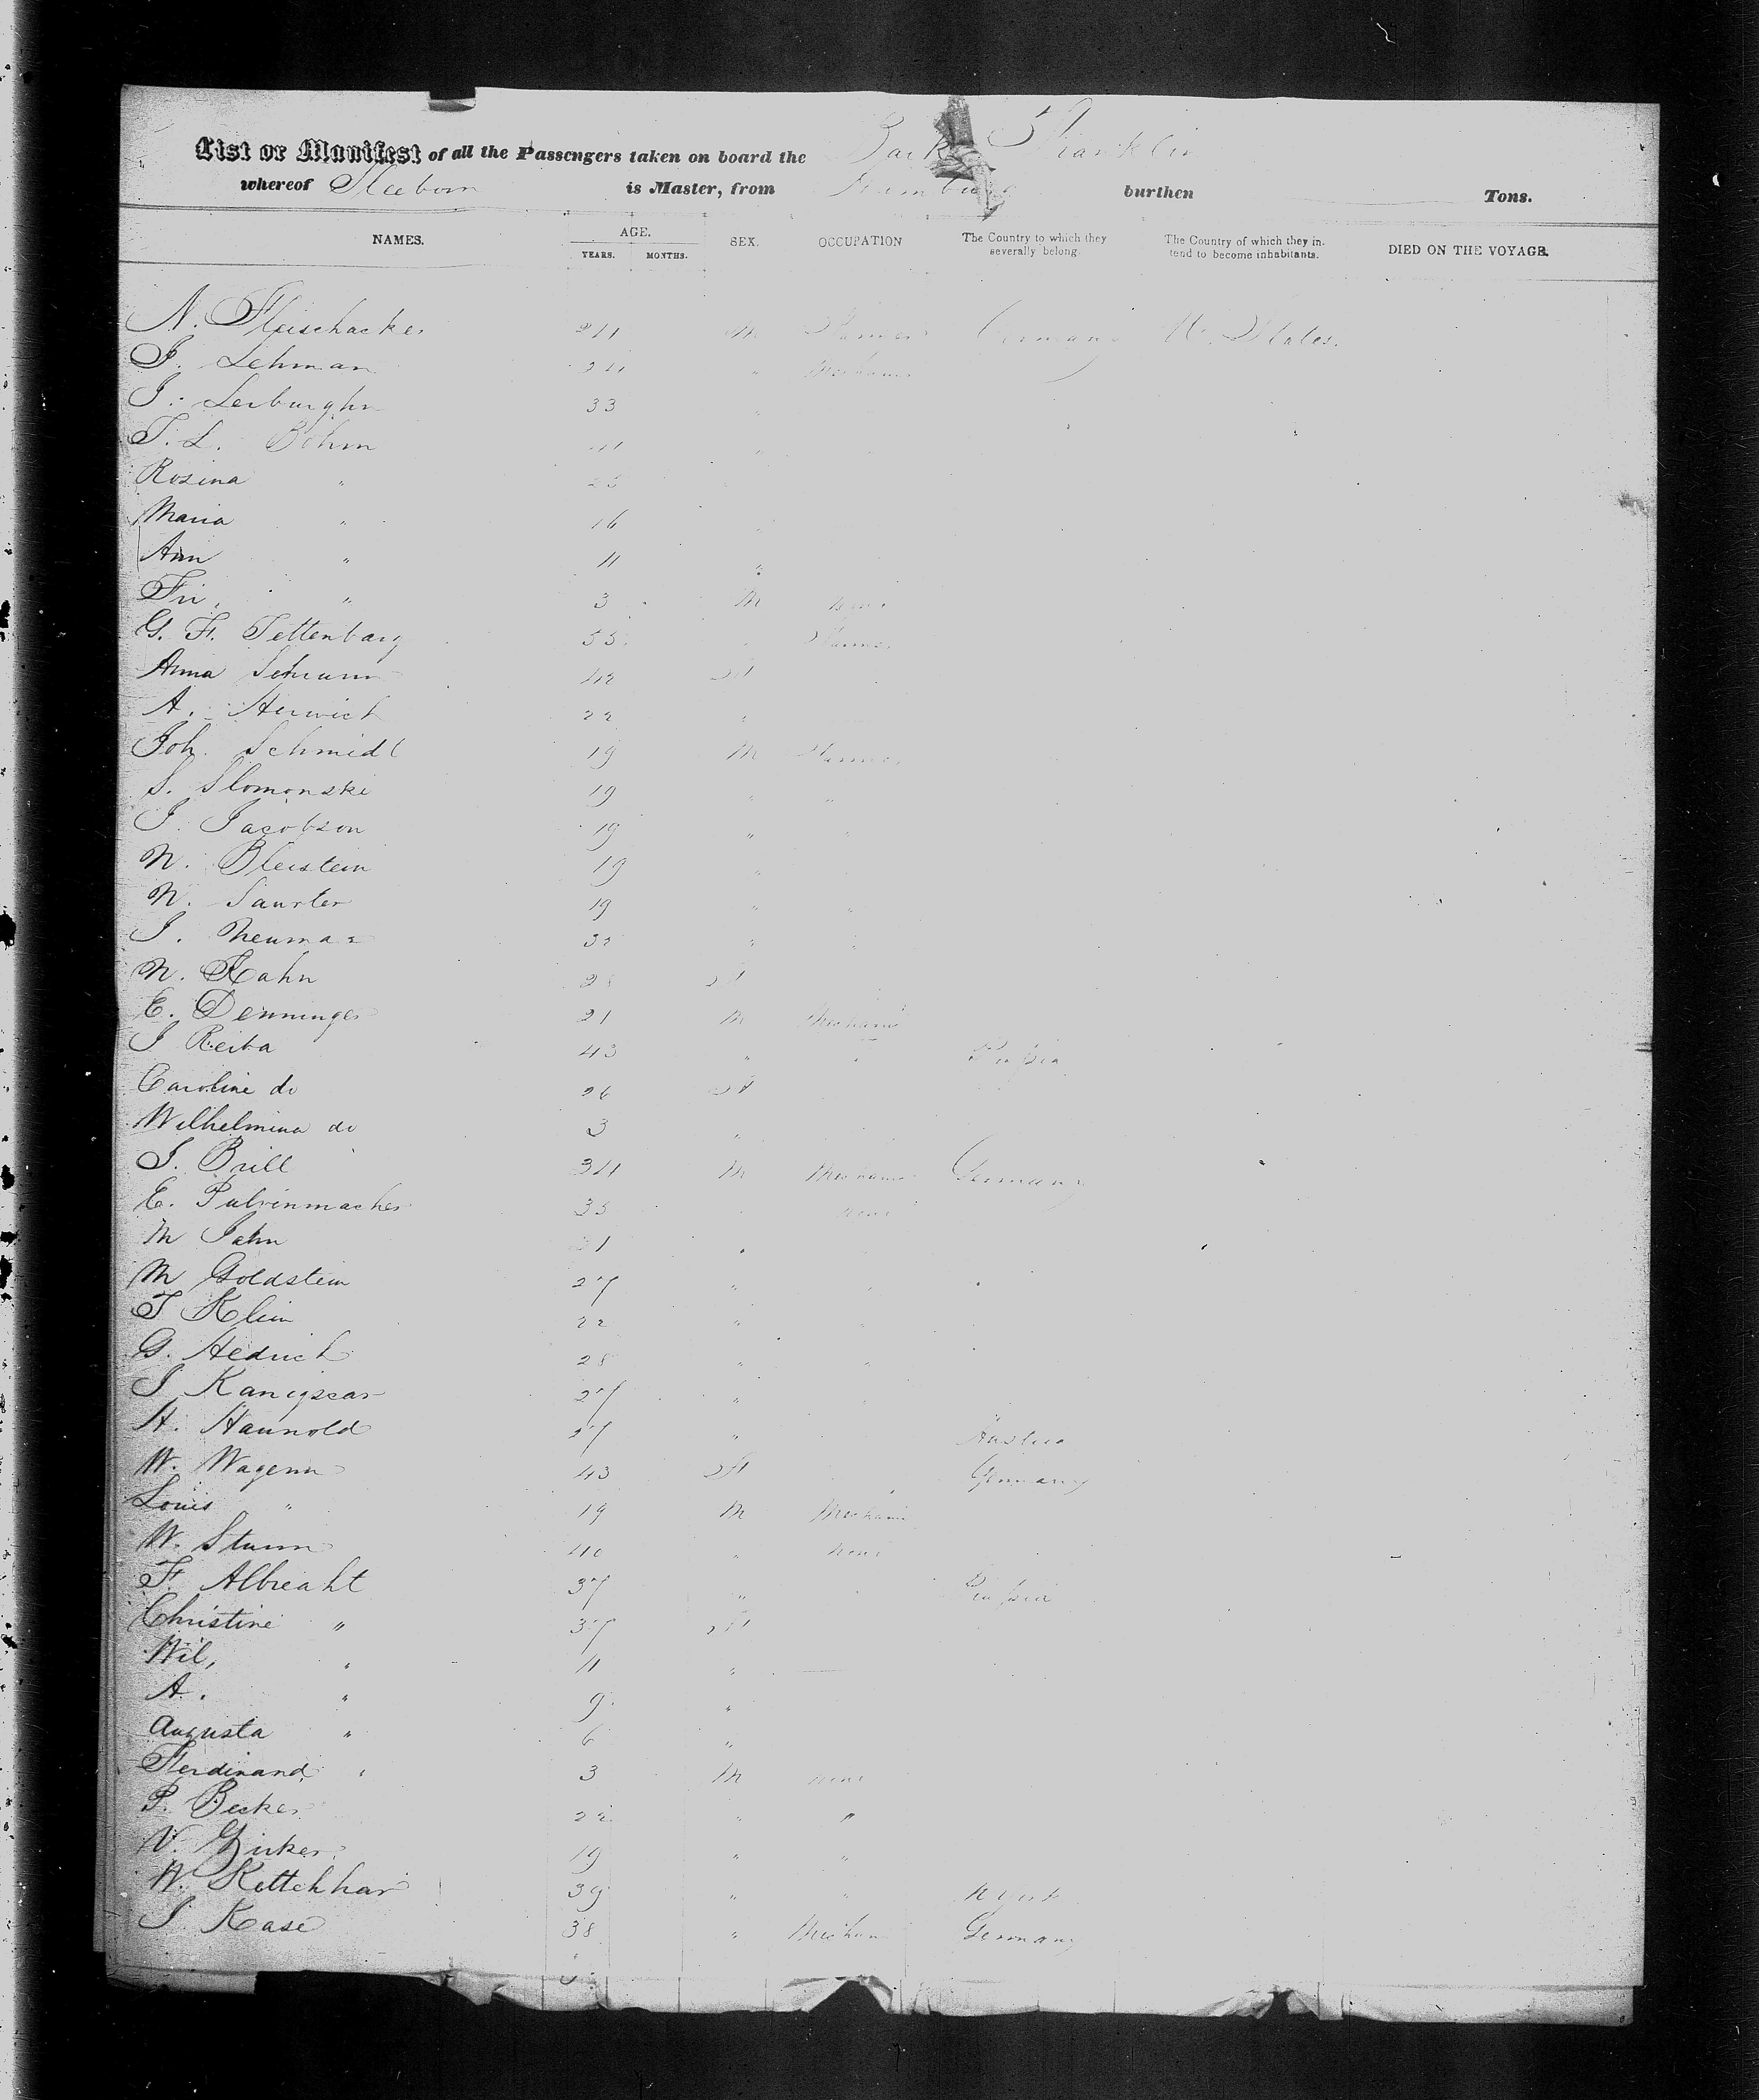 List or Manifest of all the Passengers taken on board the Bark Franklin
whereof is Master, from Hamburg burthen Tons.
NAMES. AGE. YEARS. MONTHS. SEX. OCCUPATION The Country to which they severally belong. The Country of which they intend to become inhabitants. DIED ON THE VOYAGE.
N. Fleischacker 24 M Farmer Germany U. States.
J. Lehman 24 " Mechanic
J. 33 "
T. L. Böhm "
Rosina "
Maria " 16
Ann " 11 "
" 3 M none
G. F. Tettenburg 55 Farmer
Anna 42 F
A. Herwich 22 "
Joh. Schmidt 19 M Farmer
S. Slomonski 19 " "
J. Jacobson 19 " "
N. Bleistein 19 "
N. Saurter 19 " "
J. Neuman 32 " "
N. Kahn 28 F
E. Denninger 21 M Mechanic
J Reiba 43 " " Prussia
Caroline do 26 F
Wilhelmina do 3 "
J. Brill 34 M Mechanic Germany
E. Pulvermacher 35 none
M Jahn 21 "
M Goldstein 27 "
T Klein 22 " "
G. Hedrich 28 " "
J 27 "
H. Haunold 27 " Austria
W. Wagenn 43 F " Germany
Louis " 19 M Mechanic
W. Sturm 40 " none
F. Albreaht 37 " Prussia
Christine " 37 F
Wil, " 11 "
A. " 9 "
Augusta " 6 "
Ferdinand " 3 M none
P. Becker 22 " "
V. Girker 19 " "
W. 39 " " N York
J. Kase 38 " Mechan Germany